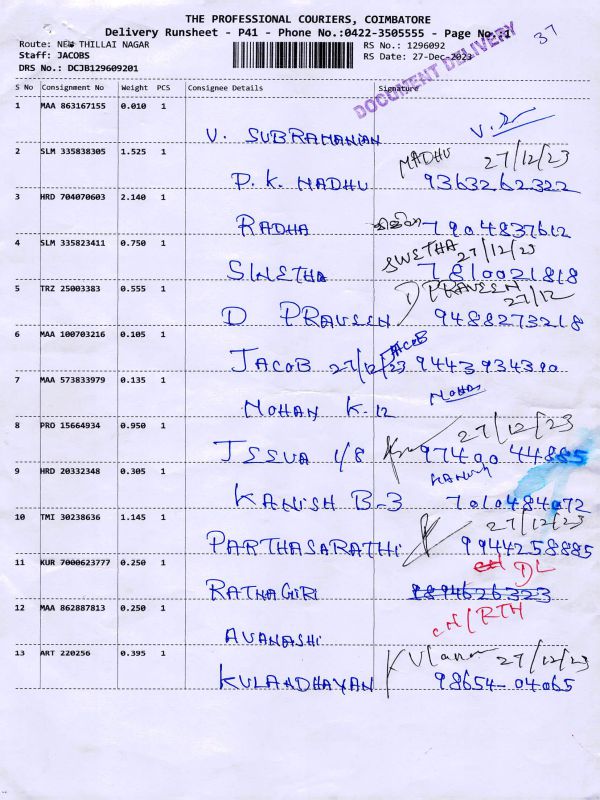 THE PROFESSIONAL COURIERS, COIMBATORE
Delivery Runsheet - P41 - Phone No.:0422-3505555 - Page No.:1
37
Route: NEW THILLAI NAGAR
RS No.: 1296092
Staff: JACOBS
RS Date: 27-Dec-2023
DRS No.: DCJB129609201
DOCUMENT DELIVERY
S No Consignment No Weight PCS Consignee Details Signature
1 MAA 863167155 0.010 1
V. SUBRAMANIAN
2 SLM 335838305 1.525 1 MADHU 27/12/23
P. K. MADHU 9363262322
3 HRD 704070603 2.140 1
RADHA 7904837612
4 SLM 335823411 0.750 1 SWETHA 27/12/23
SWETHA 7810021818
5 TRZ 25003383 0.555 1 D PRAVEEN 27/12
D PRAVEEN 9488273218
6 MAA 100703216 0.105 1 JACOB
JACOB 27/12/23 9443934390
7 MAA 573833979 0.135 1 Mohan
MOHAN K-12
8 PRO 15664934 0.950 1 27/12/23
JEEVA 1/8 97400 44885
9 HRD 20332348 0.305 1 KANISH
KANISH B-3 7010484072
10 TMI 30238636 1.145 1 27/12/23
PARTHASARATHI 9944258885
11 KUR 7000623777 0.250 1 DL
RATNAGIRI 9894626323
12 MAA 862887813 0.250 1 CN/RTN
AVANASHI
13 ART 220256 0.395 1 27/12/23
KULANDHAYAN 98654-04065